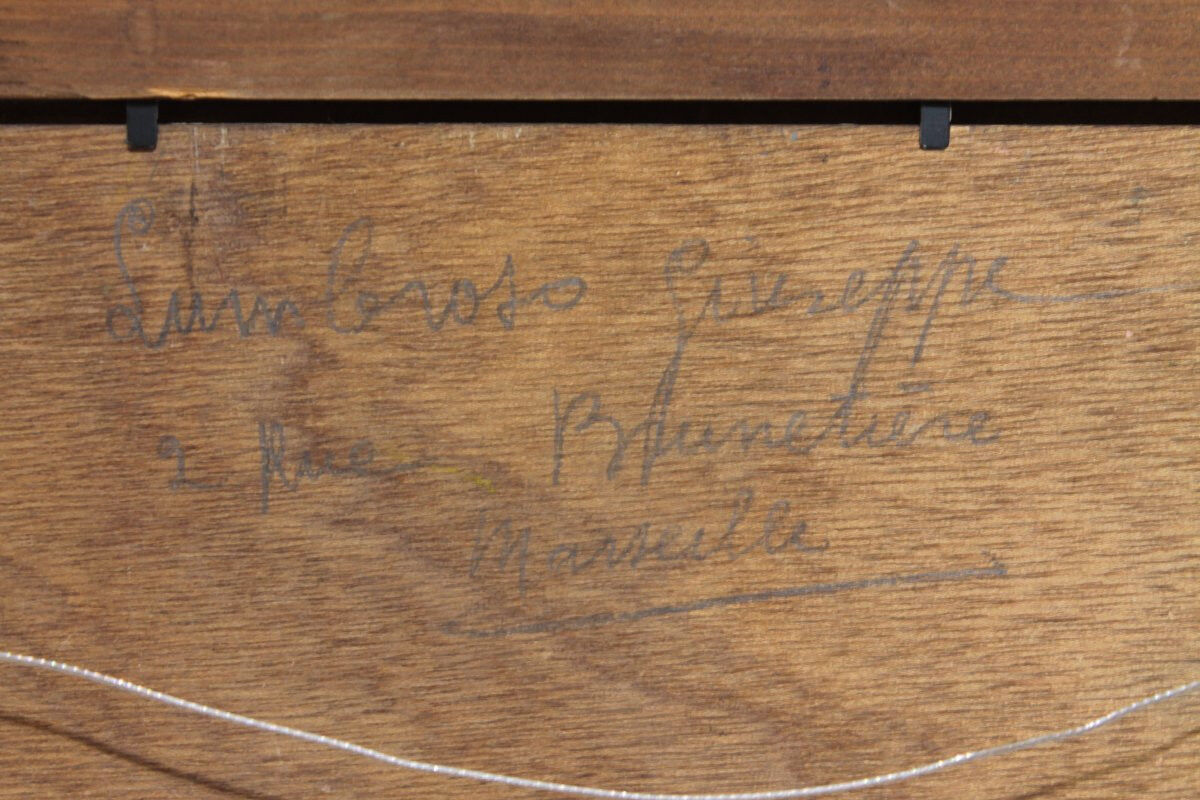 Lumbroso Giuseppe
2 Rue Brunetière
Marseille